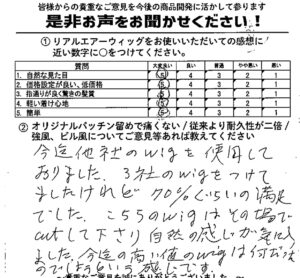 皆様からの貴重なご意見を今後の商品開発に活かして参ります
是非お声をお聞かせください！
① リアルエアーウィッグをお使いいただいての感想に
近い数字に○をつけてください。
質問 大変良い 良い 普通 やや悪い 悪い
1. 自然な見た目 5 4 3 2 1
2. 価格設定が良い、低価格 5 4 3 2 1
3. 指通りが良く驚きの髪質 5 4 3 2 1
4. 軽い着け心地 5 4 3 2 1
5. 簡単 5 4 3 2 1
② オリジナルパッチン留めで痛くない/従来より耐久性が二倍/
強風、ビル風についてご意見等あれば教えてください
今迄他社のwigを使用して
おりました。3社のwigをつけて
ましたけれど70%ぐらいの満足
でした。こちらのwigはその場で
cutして下さり自然の感じが気に入り
ました。今迄の高い値のwigは何だった
のでしょうという感じです。